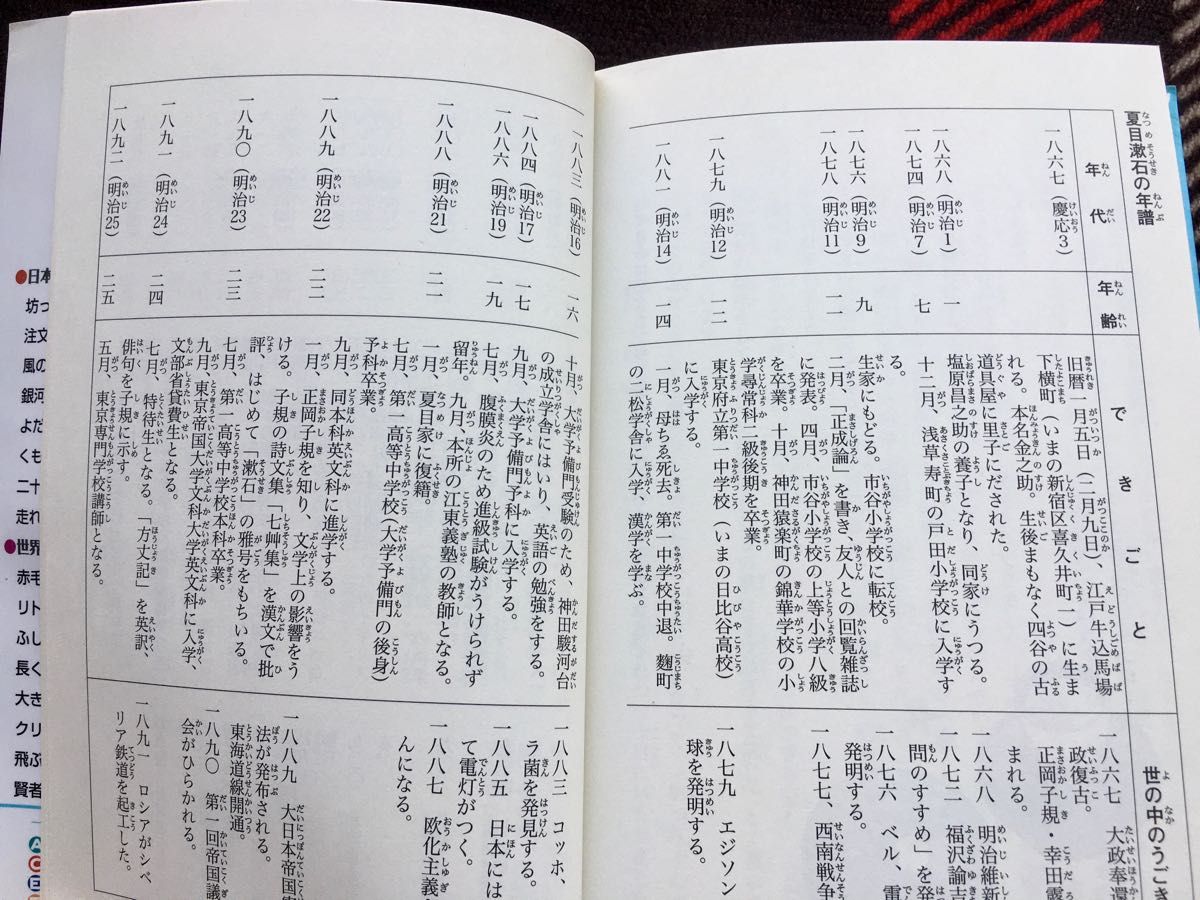 夏目漱石の年譜
年代
一八六七（慶応3）
一八六八（明治1）
一八七四（明治7）
一八七六（明治9）
一八七八（明治11）
一八七九（明治12）
一八八一（明治14）
年齢
一
七
九
一一
一二
一四
できごと
旧暦一月五日（二月九日）、江戸牛込馬場
下横町（いまの新宿区喜久井町一）に生ま
れる。本名金之助。生後まもなく四谷の古
道具屋に里子にだされた。
塩原昌之助の養子となり、同家にうつる。
十二月、浅草寿町の戸田小学校に入学す
る。
生家にもどる。市谷小学校に転校。
二月、「正成論」を書き、友人との回覧雑誌
に発表。四月、市谷小学校の上等小学八級
を卒業。十月、神田猿楽町の錦華学校の小
学尋常科二級後期を卒業。
東京府立第一中学校（いまの日比谷高校）
に入学する。
一月、母ちゑ死去。第一中学校中退。麴町
の二松学舎に入学、漢学を学ぶ。
世の中のうごき
一八六七 大政奉還
政復古。
正岡子規・幸田露
まれる。
一八六八 明治維新
一八七二 福沢諭吉
問のすすめ」を発
一八七六 ベル、電
発明する。
一八七七、西南戦争
一八七九 エジソン
球を発明する。
一八八三（明治16）
一八八四（明治17）
一八八六（明治19）
一八八八（明治21）
一八八九（明治22）
一八九〇（明治23）
一八九一（明治24）
一八九二（明治25）
一六
一七
一九
二一
二二
二三
二四
二五
十月、大学予備門受験のため、神田駿河台
の成立学舎にはいり、英語の勉強をする。
九月、大学予備門予科に入学する。
七月、腹膜炎のため進級試験がうけられず
留年。九月、本所の江東義塾の教師となる。
一月、夏目家に復籍。
七月、第一高等中学校（大学予備門の後身）
予科卒業。
九月、同本科英文科に進学する。
一月、正岡子規を知り、文学上の影響をう
ける。子規の詩文集「七艸集」を漢文で批
評、はじめて「漱石」の雅号をもちいる。
七月、第一高等中学校本科卒業。
九月、東京帝国大学文科大学英文科に入学、
文部省貸費生となる。
七月、特待生となる。「方丈記」を英訳、
俳句を子規に示す。
五月、東京専門学校講師となる。
一八八三 コッホ、
ラ菌を発見する。
一八八五 日本には
て電灯がつく。
一八八七 欧化主義
んになる。
一八八九 大日本帝国憲
法が発布される。
東海道線開通。
一八九〇 第一回帝国議
会がひらかれる。
一八九一 ロシアがシベ
リア鉄道を起工した。
●日本
坊っ
注文
風の
銀河
よだ
くも
二十
走れ
●世界
赤毛
リト
ふし
長く
大き
クリ
飛ぶ
賢者